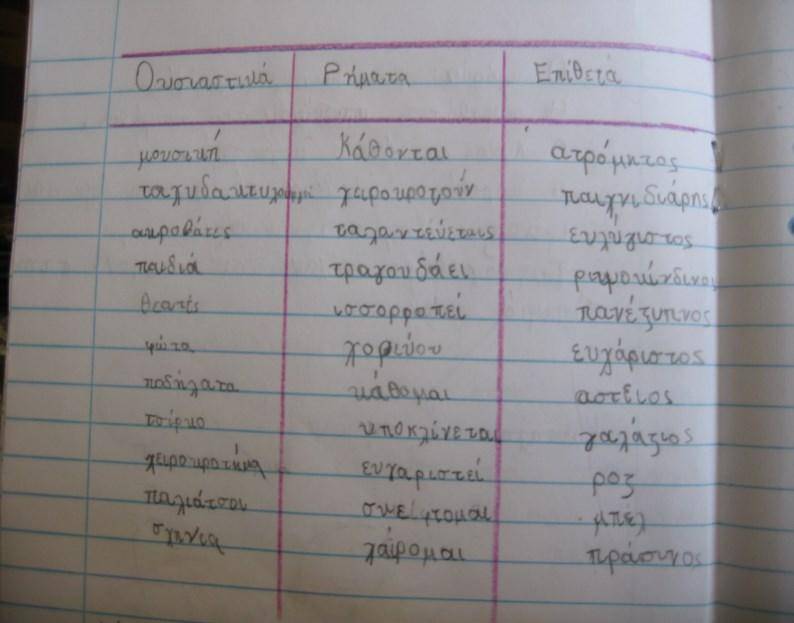 Ουσιαστικά Ρήματα Επίθετα
μουσική κάθονται ατρόμητος
χειροκροτούν παιχνιδιάρης
ακροβάτες ταλαντεύεταις ευλύγιστος
παιδιά τραγουδάει
θεατές ισσορροπεί πανέξυπνος
φώτα χορεύου ευχάριστος
ποδήλατα κάθομαι αστείος
τσίρκο υποκλίνεται γαλάζιος
χειροκρότημα ευχαριστεί ροζ
παλιάτσοι μπλέ
σχηνιά χαίρομαι πράσινος